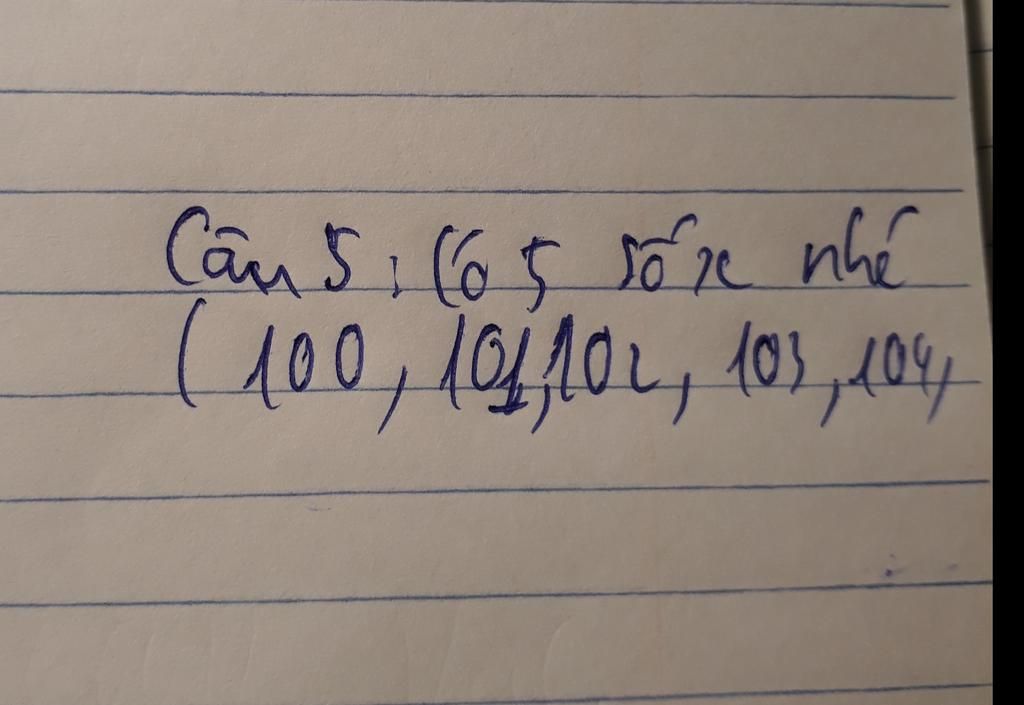 Câu 5: Có 5 số x nhé
(100, 101, 102, 103, 104,